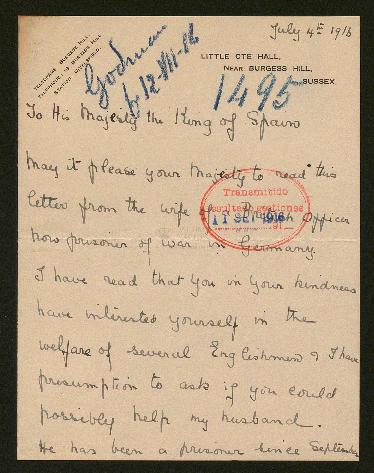 July 4th 1916
TELEPHONE BURGESS HILL
Godman
12-VII-16
1495
LITTLE OTE HALL,
NEAR BURGESS HILL,
SUSSEX
To His Majesty the King of Spain
May it please your Majesty to read this
letter from the wife of a British Officer
now prisoner of war in Germany
I have read that you in your kindness
have interested yourself in the
welfare of several Englishmen & I have
presumption to ask if you could
possibly help my husband.
He has been a prisoner since September
Transmitido
resultado gestiones
11 SET 1916